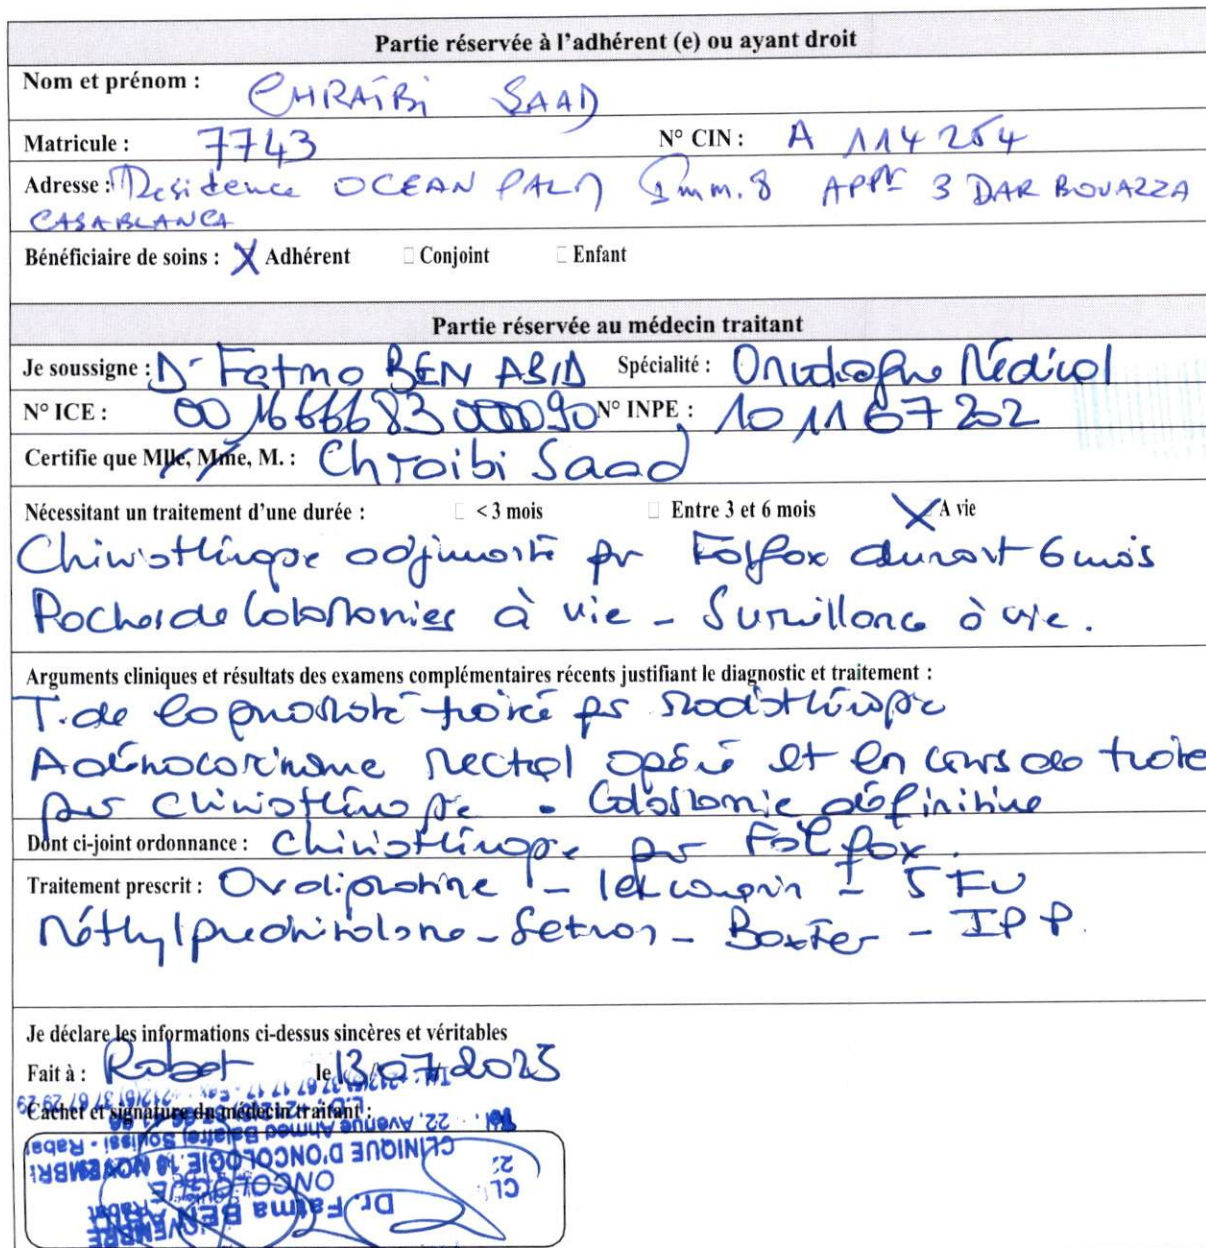 Partie réservée à l'adhérent (e) ou ayant droit
Nom et prénom : CHRAÏBI SAAD
Matricule : 7743 N° CIN : A 114254
Adresse : Residence OCEAN PALM Imm. 8 APPT 3 DAR BOUAZZA
CASABLANCA
Bénéficiaire de soins : X Adhérent □ Conjoint □ Enfant
Partie réservée au médecin traitant
Je soussigne : Dr Fatma BEN ABID Spécialité : Oncologue Médical
N° ICE : 001666683000090 N° INPE : 101167202
Certifie que Mlle, Mme, M. : Chraibi Saad
Nécessitant un traitement d'une durée : □ < 3 mois □ Entre 3 et 6 mois X A vie
Chimiothérapie adjuvante par Folfox durant 6 mois
Poches de Colostomies à vie - Surveillance à vie.
Arguments cliniques et résultats des examens complémentaires récents justifiant le diagnostic et traitement :
T. de la prostate traité par radiothérapie
Adénocarcinome rectal opéré et en cours de
par chimiothérapie . Colostomie définitive
Dont ci-joint ordonnance : Chimiothérapie par Folfox.
Traitement prescrit : Oxaliplatine - - 5 FU
Méthylprednisolone - Setron - Baxter - IPP.
Je déclare les informations ci-dessus sincères et véritables
Fait à : Rabat le 13/07/2023
Cachet et signature du médecin traitant :
22, Avenue Ahmed Balafrej Souissi - Rabat
CLINIQUE D'ONCOLOGIE 16 NOVEMBRE
ONCOLOGUE
Dr. Fatma BEN ABID